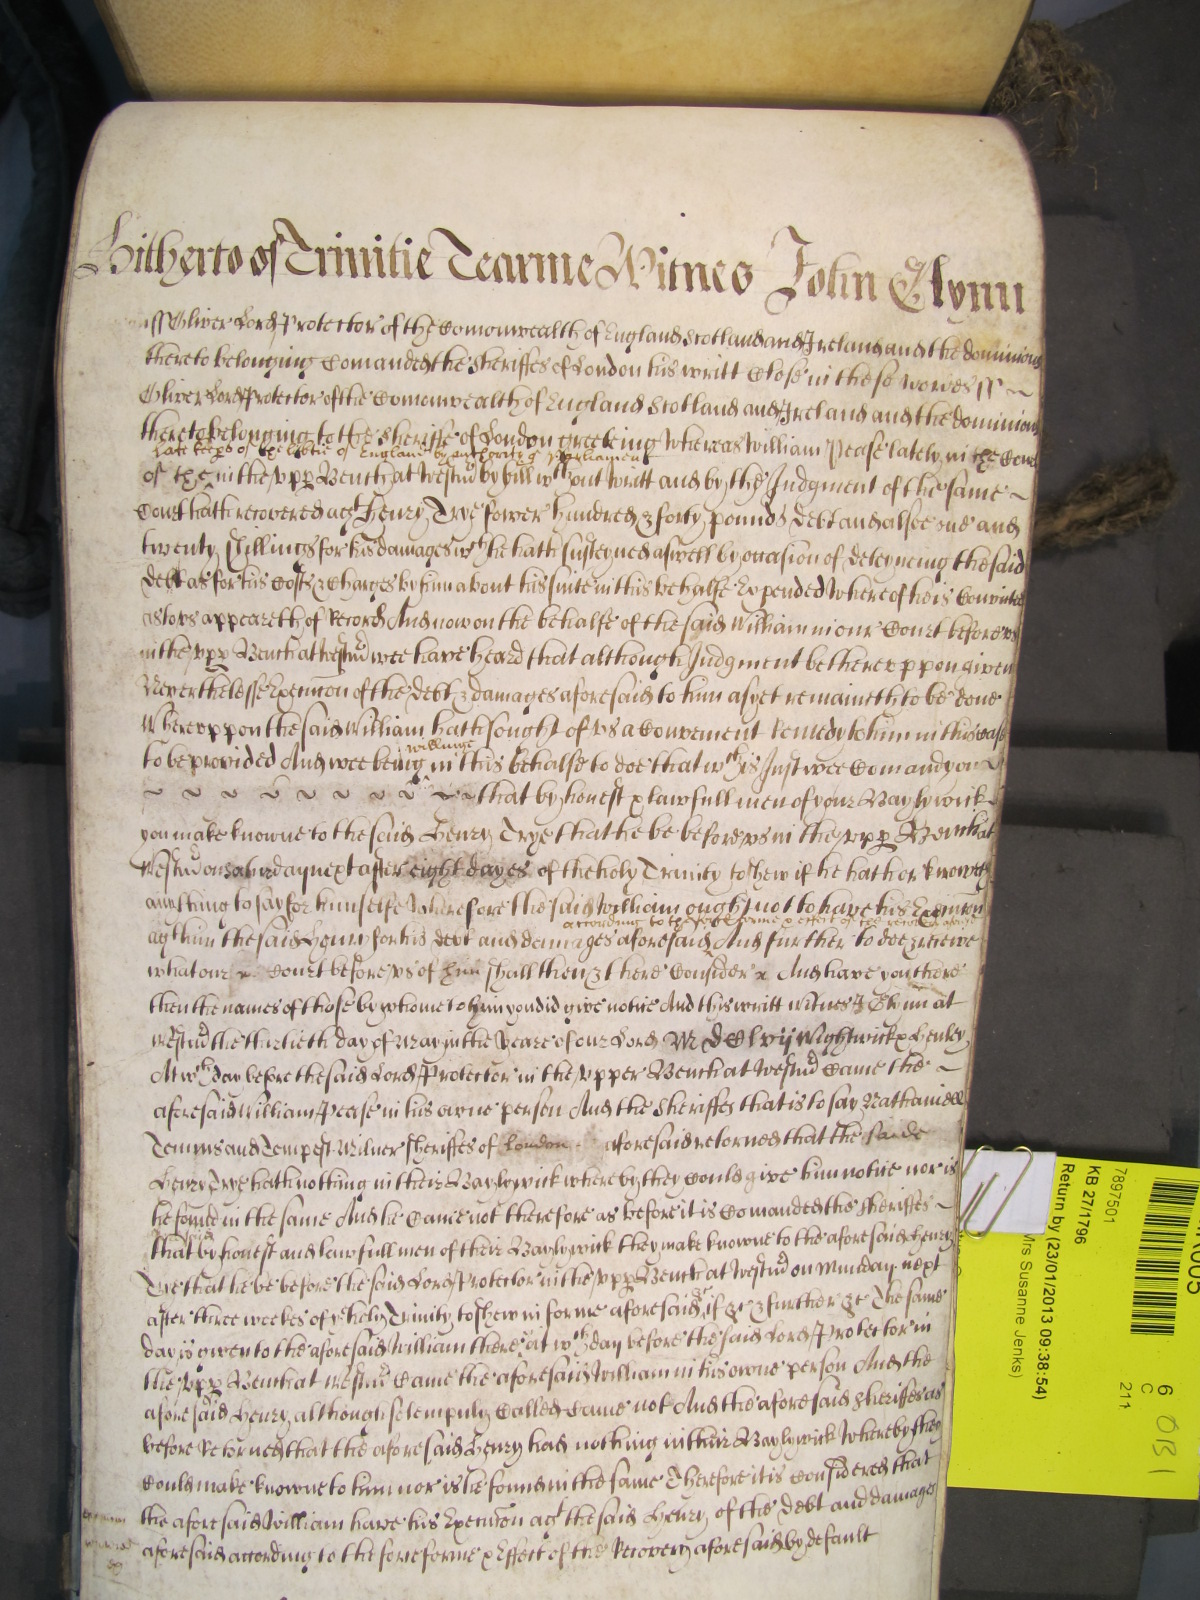 Hitherto of Trinitie Tearme Witnes John Glynn
ss Oliver Lord Protector of the Comonwealth of England Scotland and Ireland and the dominions
thereto belonging Comanded the Sheriffes of London his writt Close in these wordes ss ~
Oliver Lord Protector of the Comonwealth of England Scotland and Ireland and the dominions
thereto belonging to the Sheriffe of London greeting Whereas William Pease lately in the Court
late keeps of the libtie of England by authority of Parliament
of the in the upp Bench at Westmr by bill wthout writt and by the Judgment of the same ~
Court hath recovered agt Henry Trye fower hundred & forty pounds debt and alsoe one and
twenty shillings for his damages wch he hath susteyned aswell by occasion of deteyning the said
debt as for his Costs & Charges by him about his suite in this behalfe Expended Whereof he is Convicted
as to us appeareth of Record And now on the behalfe of the said William in our Court before us
in the upp Bench at Westmr wee have heard that although Judgment be thereuppon given
Neverthelesse Execucon of the debt & damages aforesaid to him as yet remaineth to be done
Whereuppon the said William hath sought of us a Convenient Remedy to him in this case
willinge
to be provided And wee being in this behalfe to doe that wch is Just wee Comand you
~ ~ ~ ~ ~ ~ ~ ~ ~ that by honest & lawfull men of your Baylywick
you make knowne to the said Henry Trye that he be before us in the upp Bench at
Westmr on Saturday next after eight dayes of the holy Trinity to shew if he hath or knoweth
anything to say for himselfe Wherefore the said William ought not to have his Execucon
according to the force forme & effect of the
agt him the said Henry for his debt and damages aforesaid And further to doe & receive
what our Court before us of him shall then & there Consider And have you there
then the names of those by whome to him you did give notice And this writt witnes J Glynn at
Westmr the thirtieth day of May in the yeare of our Lord M DClvij Wightwick & Henley
At wch day before the said Lord Protector in the upper Bench at Westmr Came the ~
aforesaid William Pease in his owne person And the Sheriffes that is to say Nathaniell
Temms and Tempest Milner Sheriffes of London aforesaid retorned that the saide
Henry Trye hath nothing in their Baylywick whereby they Could give him notice nor is
he found in the same And he Came not therefore as before it is Comanded the Sheriffes ~
that by honest and lawfull men of their Baylywick they make knowne to the aforesaid Henry
Trye that he be before the said Lord Protector in the upp Bench at Westmr on Munday next
after three weekes of ye holy Trinity to shew in forme aforesaid if &c & further &c The same
day is given to the aforesaid William there at wch day before the said Lord Protector in
the upp Bench at Westmr Came the aforesaid William in his owne person And the
aforesaid Henry although solempnly Called Came not And the aforesaid Sheriffes as
before Retorned that the aforesaid Henry had nothing in their Baylywick Whereby they
Could make knowne to him nor is he found in the same Therefore it is Considered that
the aforesaid William have his Execucon agt the said Henry of the debt and damages
aforesaid according to the force forme & Effect of the Recovery aforesaid by default
7897501
KB 27/1796
Return by (23/01/2013 09:38:54)
Mrs Susanne Jenks)
6
C
211